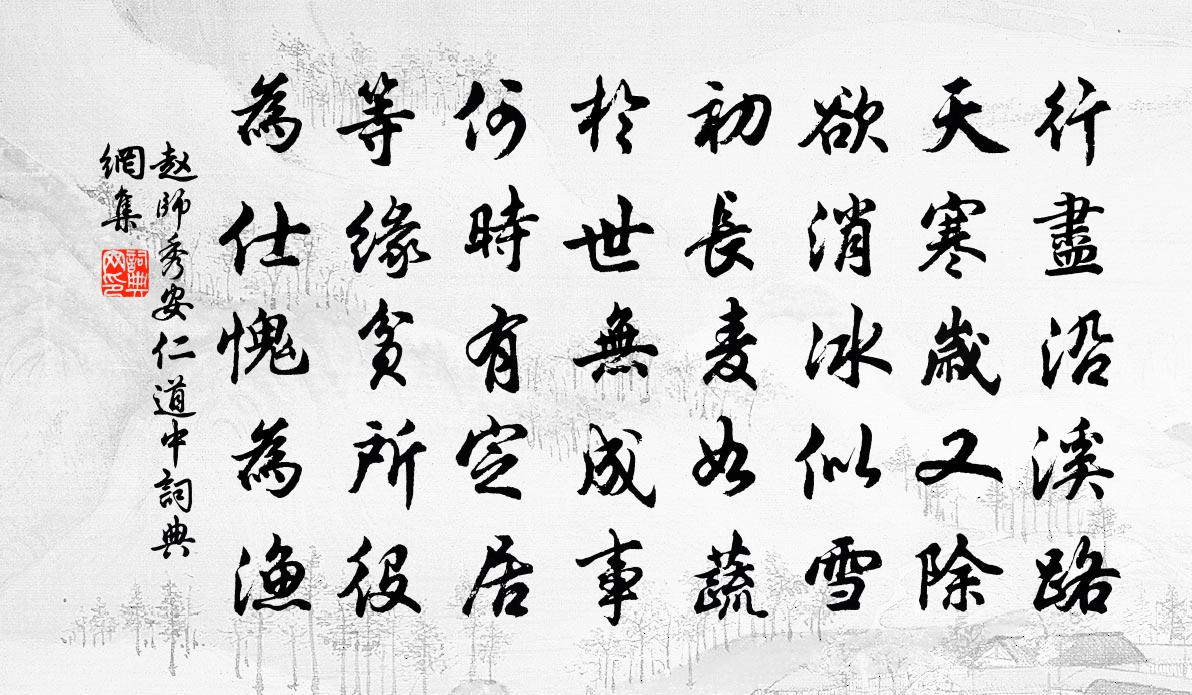 行盡沿溪路
天寒歲又除
欲消冰似雪
初長麦如蔬
於世無成事
何時有定居
等緣貧所役
為仕愧為漁
赵師秀安仁道中詞典
網集
詞典
网印